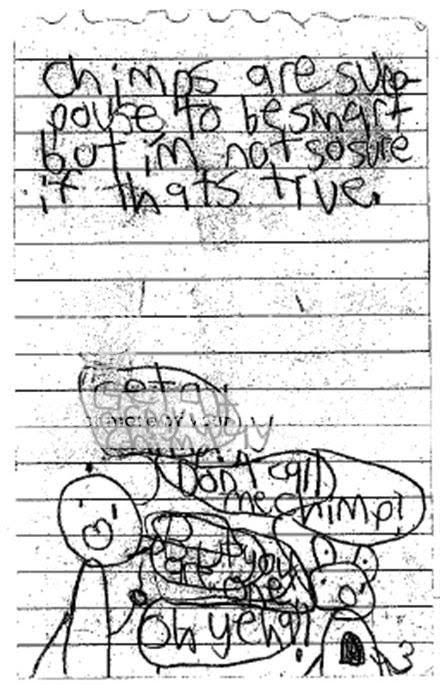 chimps are sup
pouse to be smart
but i'm not so sure
if thats true.
Don't call
me chimp!
But you
are one
oh yeh!!